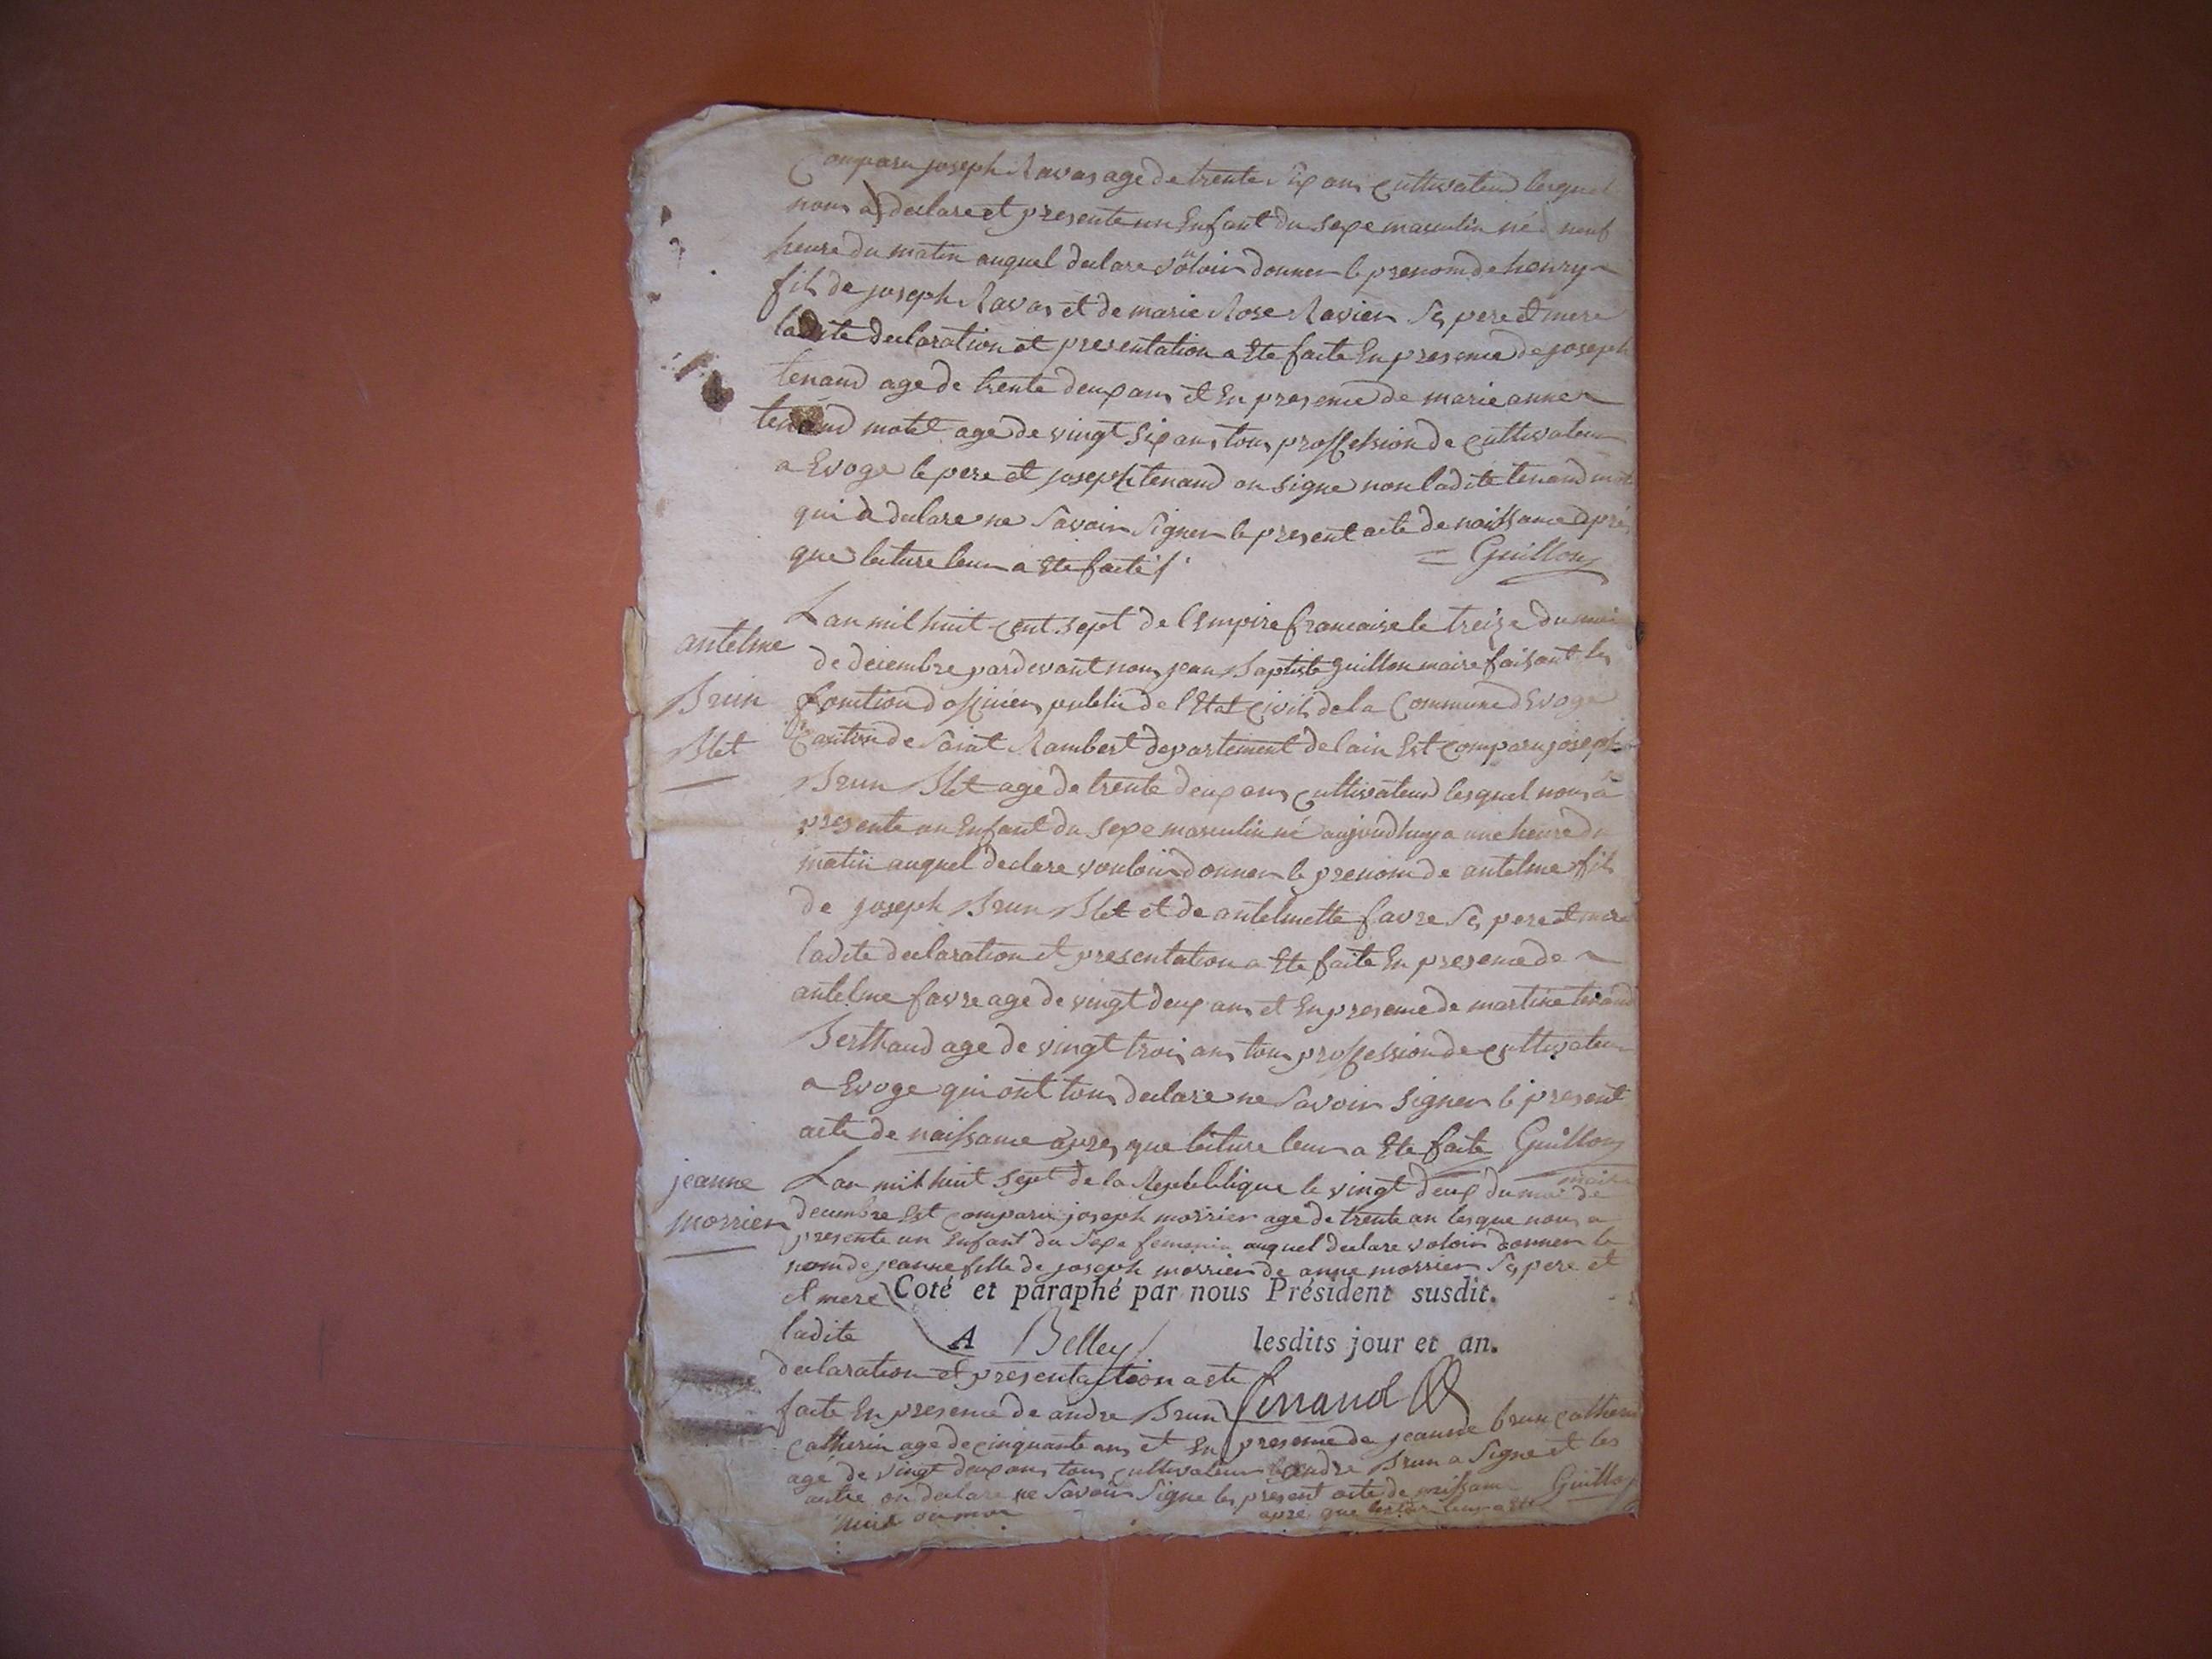 Comparu joseph Ravas age de trente six ans cultivateur lesquel
nous a declare et presente un Enfant du sexe masculin né neuf
heure du matin auquel declare voloir donner le prenom de henry
fils de joseph Ravas et de marie Rose Ravier Ses pere et mere
ladite declaration et presentation a Ete faite En presence de joseph
tenand age de trente deux ans et En presence de marie anne
tenand motel age de vingt six ans tous proffession de cultivateur
a Evoge le pere et joseph tenand on signe non ladite tenand
qui a declare ne Savoir Signer le present acte de naissance apré
que lecture leur a Ete faite
Guillon
antelme
Brun
Blet
Lan mil huit cent sept de lEmpire francaise le treize du moi
de decembre pardevant nous jean Baptiste Guillon maire faisant les
fonction dofficier public de lEtat Civil de la Commune dEvoge
Canton de Saint Rambert departement de lain Est comparu joseph
Brun Blet age de trente deux ans cultivateur lesquel nous a
presente un Enfant du sexe masculin né aujourdhuy a une heure du
matin auquel declare vouloir donner le prenom de antelme fils
de joseph Brun Blet et de antelmette favre Ses pere et mere
ladite declaration et presentation a Ete faite En presence de
antelme favre age de vingt deux ans et En presence de martine tenand
Berthaud age de vingt trois ans tous proffession de cultivateur
a Evoge qui ont tous declare ne Savoir Signer le present
acte de naissance apres que lecture leur a Ete faite Guillon
maire
jeanne
morrier
Lan mil huit sept de la Republique le vingt deux du moi de
decembre Est comparu joseph morrier age de trente an lesque nous a
presente un Enfant du Sexe femenin auquel declare voloir donner le
nom de jeanne fille de joseph morrier de anne morrier Ses pere et
et mere
Coté et paraphé par nous Président susdit.
ladite
A Belley lesdits jour et an.
declaration et presentation a ete
faite En presence de andre Brun
catherin age de cinquante ans et En presence de jeanne brun catherin
age de vingt deux ans tous cultivateur andre Brun a Signe et les
autre on declare ne Savoir Signe les present acte de naissance Guillon
apre que leur a Ete